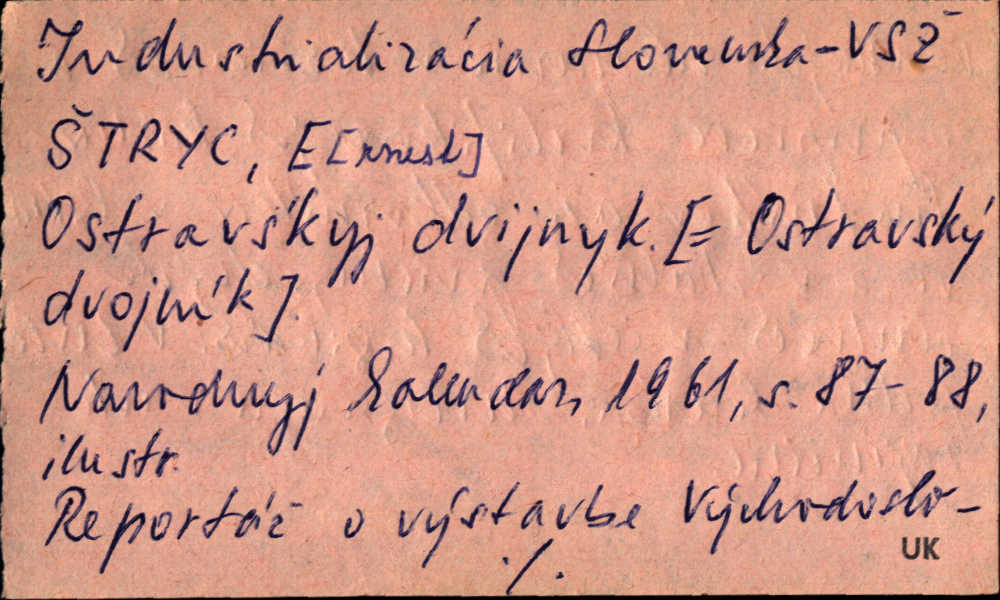 Industrializácia Slovenska-VSŽ
ŠTRYC, E[rnest]
Ostravśkyj dvijnyk. [= Ostravský
dvojník].
Narodnyj kalendar, 1961, s. 87-88,
ilustr.
Reportáž o výstavbe Východoslo-
./.
UK